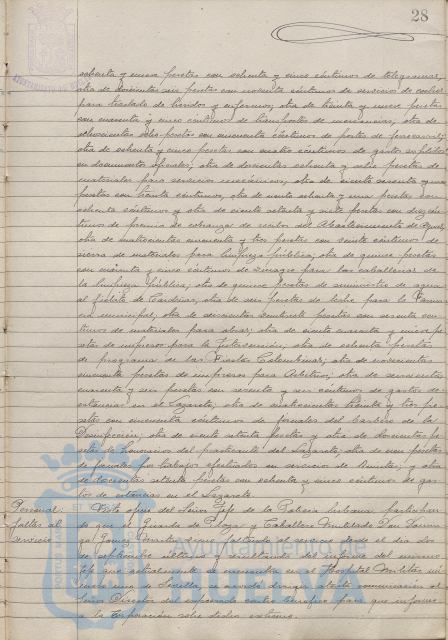 28
ochenta y nueve pesetas con ochenta y cinco céntimos de telegramas,
otra de doscientas seis pesetas con noventa céntimos de servicios de coches
para traslado de heridos y enfermos, otra de treinta y nueve pesetas
con cincuenta y cinco céntimos de transportes de mercancías, otra de
ochocientas pesetas con cincuenta céntimos de portes de ferrocarril,
otra de ochenta y cinco pesetas con cuatro céntimos de gastos suplidos
en documentos oficiales, otra de doscientas ochenta y seis pesetas de
materiales para servicios mecánicos, otra de ciento sesenta y una
pesetas con treinta céntimos, otra de ciento ochenta y una pesetas con
ochenta céntimos y otra de ciento setenta y siete pesetas con diez cén-
timos de premio de cobranza de recibos del Abastecimiento de Aguas,
otra de cuatrocientas cincuenta y tres pesetas con veinte céntimos de
sierra de materiales para limpieza pública, otra de quince pesetas
con noventa y cinco céntimos de vinagre para las caballerías de
la limpieza pública, otra de quince pesetas de suministro de agua
al fielato de Cardenas, otra de seis pesetas de leche para la
municipal, otra de doscientas veintisiete pesetas con sesenta cén-
timos de materiales para obras, otra de ciento cuarenta y nueve pe-
setas de impresos para la Intervención, otra de ochenta pesetas
de programa de las Fiestas Colombinas, otra de novecientas
cincuenta pesetas de impresos para Arbitrios, otra de
cuarenta y seis pesetas con setenta y seis céntimos de gastos de
estancias en el Lazareto, otra de cuatrocientas treinta y tres pe-
setas con cincuenta céntimos de jornales del barbero de la
Desinfección, otra de ciento setenta pesetas y otra de doscientas pe-
setas de honorarios del practicante del Lazareto, otra de cien pesetas
de jornales por trabajos efectuados en servicios de y otra
de doscientas setenta pesetas con ochenta y cinco céntimos de gas-
tos de estancias en el Lazareto.
Personal:
faltas al
servicio
Visto oficio del Señor Jefe de la Policía Urbana participan-
do que el Guarda de Playa y Caballero Mutilado Don
Gómez Martín viene faltando al servicio desde el día dos
de septiembre último y resultando del informe del mismo
Jefe que actualmente se encuentra en el Hospital Militar
de Sevilla, se acordó dirigir atenta comunicación al
Señor Director del expresado centro benéfico para que informe
a la Corporación sobre dicho extremo.
Ayuntamiento de
HUELVA